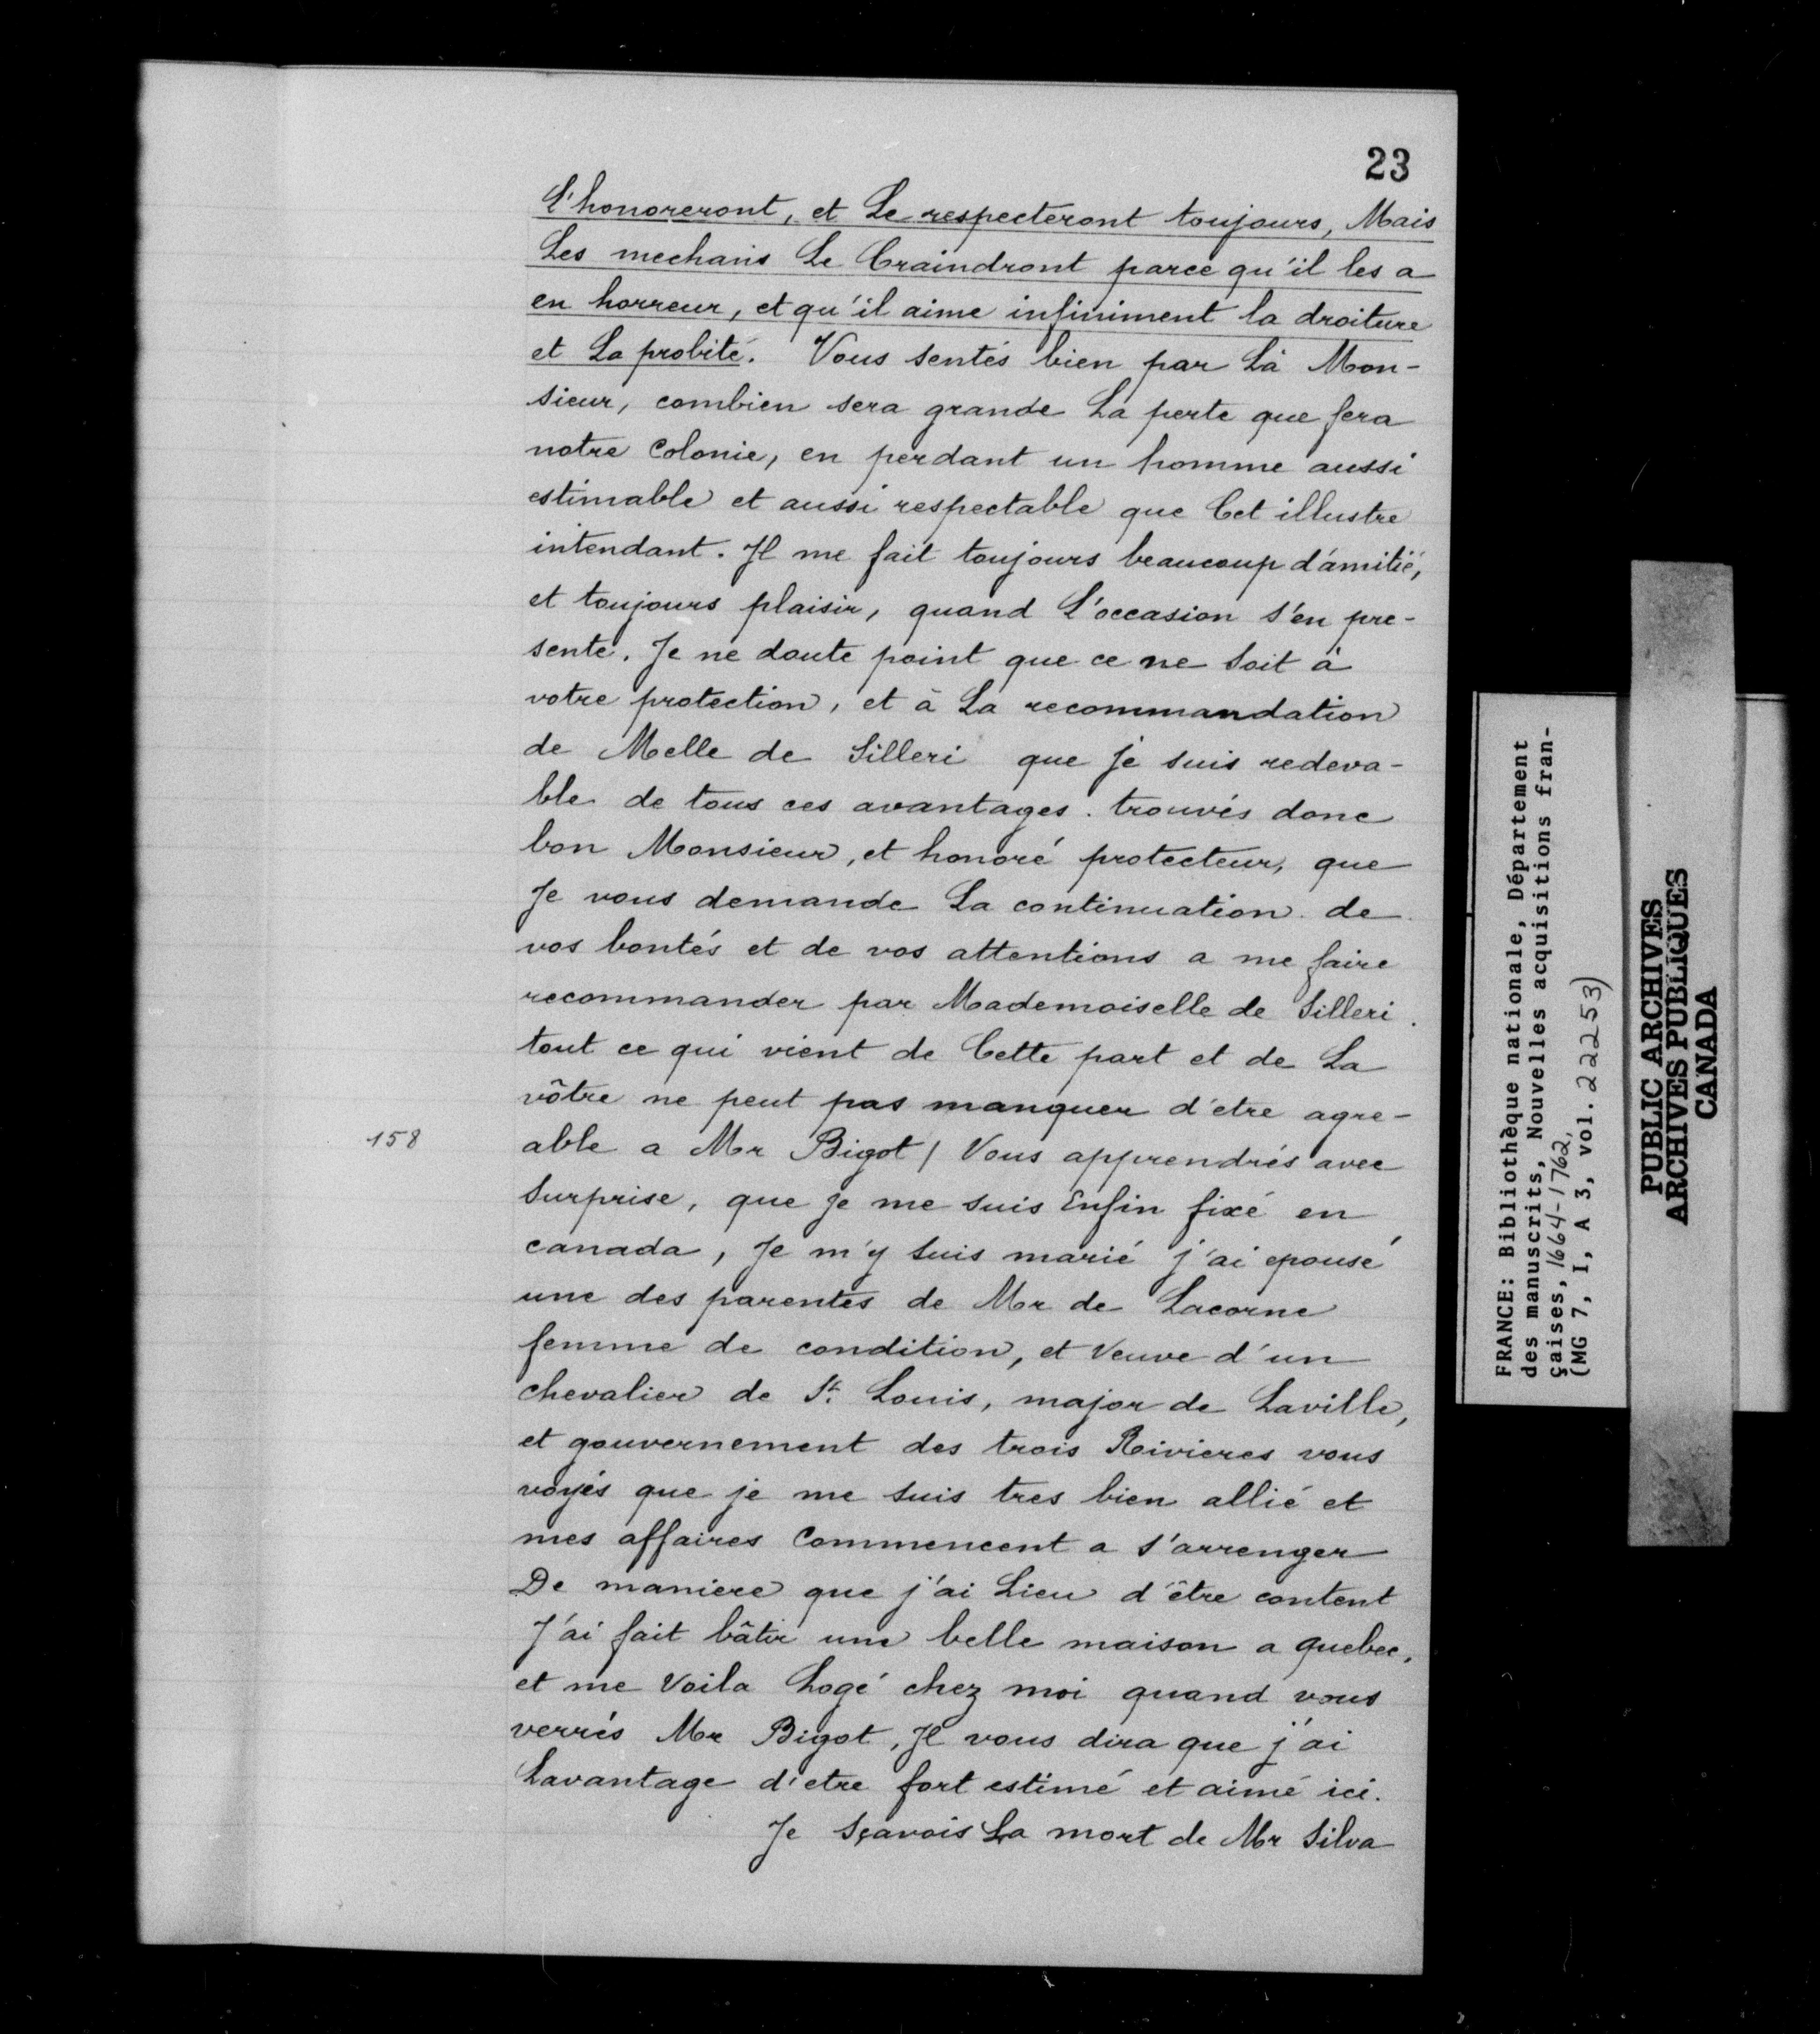 23
L'honoreront, et Le respecteront toujours, Mais
Les mechans Le Craindront parce qu'il les a
en horreur, et qu'il aime infiniment la droiture
et La probité. Vous sentés bien par Là Mon-
sieur, combien sera grande La perte que fera
notre Colonie, en perdant un homme aussi
estimable et aussi respectable que Cet illustre
intendant. Il me fait toujours beaucoup d'amitié,
et toujours plaisir, quand L'occasion s'en pre-
sente. Je ne doute point que ce ne soit à
votre protection, et à La recommandation
de Melle de Silleri que je suis redeva-
ble de tous ces avantages. trouvés donc
bon Monsieur, et honoré protecteur, que
Je vous demande La continuation de
vos bontés et de vos attentions a me faire
recommander par Mademoiselle de Silleri.
tout ce qui vient de Cette part et de La
vôtre ne peut pas manquer d'etre agre-
158
able a Mr Bigot / Vous apprendrés avec
surprise, que je me suis Enfin fixé en
canada, Je m'y suis marié j'ai epousé
une des parentes de Mr de Lacorne
femme de condition, et Veuve d'un
chevalier de St. Louis, major de Laville,
et gouvernement des trois Rivieres vous
voyés que je me suis tres bien allié et
mes affaires Commencent a s'arrenger
De maniere que j'ai Lieu d'être content
J'ai fait bâtir une belle maison a quebec,
et me Voila Logé chez moi quand vous
verrés Mr Bigot, Il vous dira que j'ai
Lavantage d'etre fort estimé et aimé ici.
Je sçavois La mort de Mr Silva
FRANCE: Bibliothèque nationale, Département
des manuscrits, Nouvelles acquisitions fran-
çaises, 1664-1762,
(MG 7, I, A 3, vol. 22253)
PUBLIC ARCHIVES
ARCHIVES PUBLIQUES
CANADA